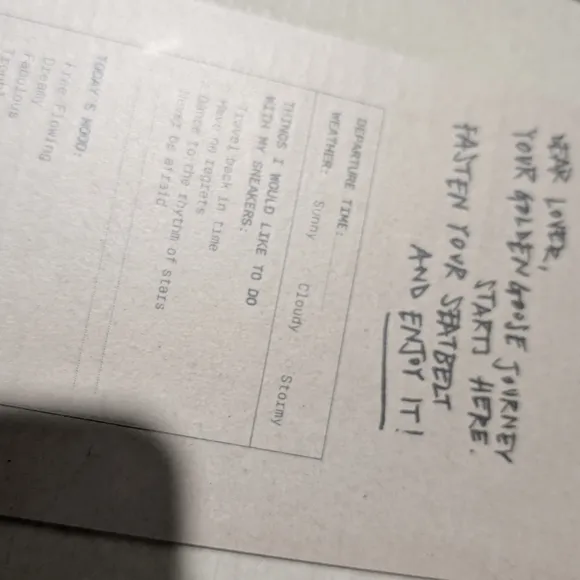 DEAR LOVER,
YOUR GOLDEN GOOSE JOURNEY
STARTS HERE.
FASTEN YOUR SEATBELT
AND ENJOY IT!
DEPARTURE TIME:
WEATHER: Sunny Cloudy Stormy
THINGS I WOULD LIKE TO DO
WITH MY SNEAKERS:
Travel back in time
Have no regrets
Dance to the rhythm of stars
Never be afraid
TODAY'S MOOD:
Free-flowing
Dreamy
Fabulous